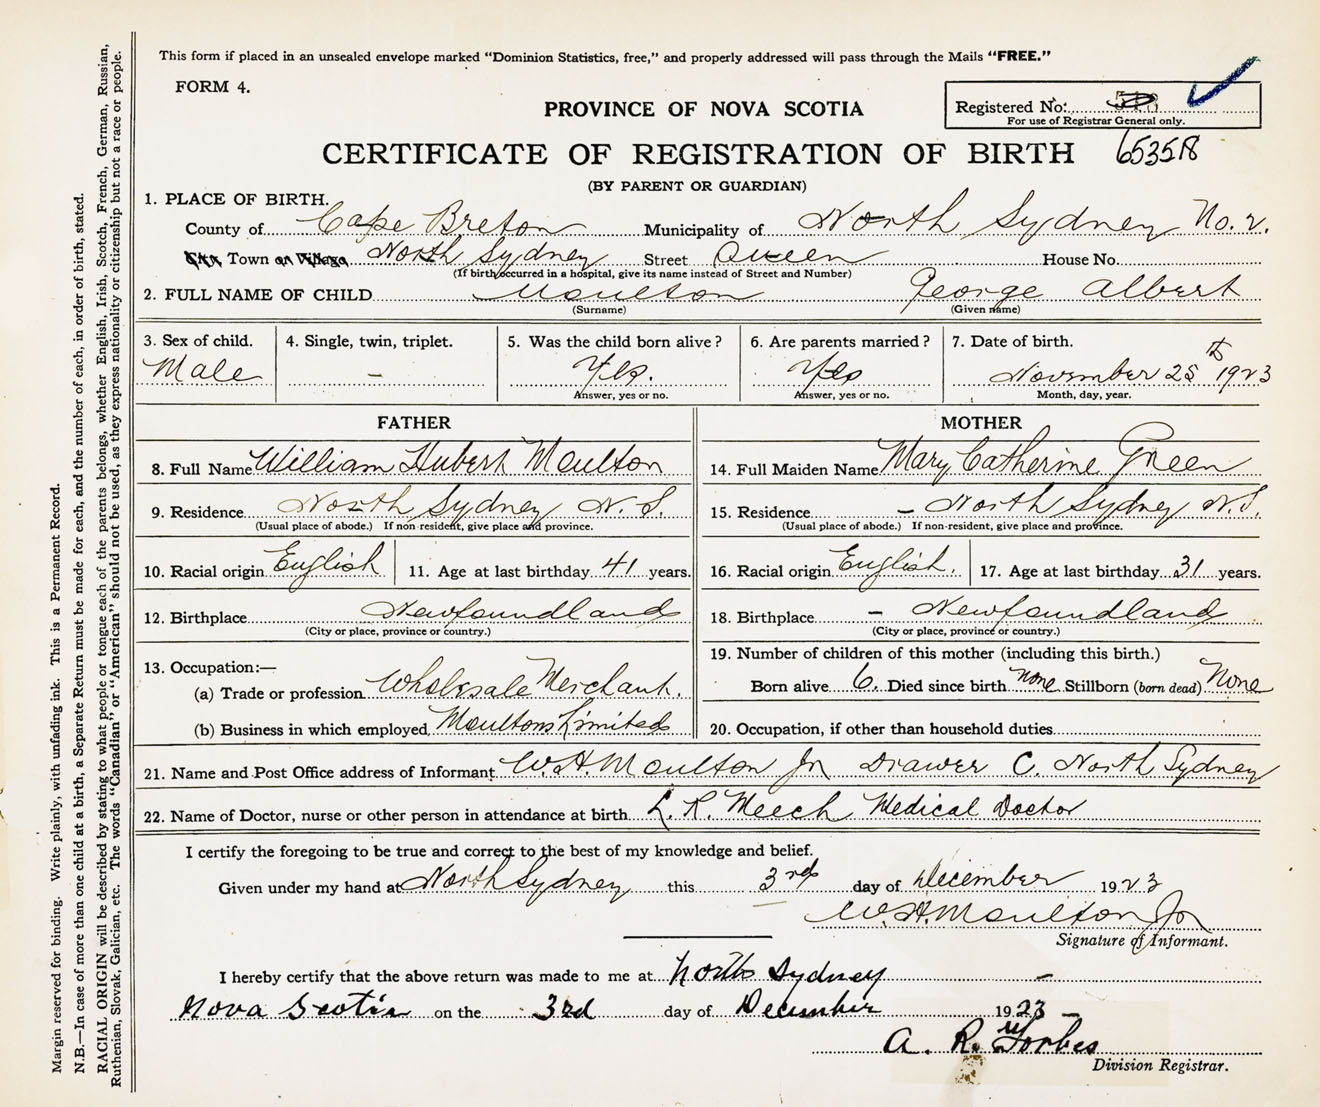 This form if placed in an unsealed envelope marked "Dominion Statistics, free," and properly addressed will pass through the Mails "FREE."
FORM 4.
PROVINCE OF NOVA SCOTIA
Registered No:
For use of Registrar General only.
CERTIFICATE OF REGISTRATION OF BIRTH 653518
(BY PARENT OR GUARDIAN)
1. PLACE OF BIRTH.
County of Cape Breton Municipality of North Sydney No. 2.
City Town or Village North Sydney Street Queen House No.
(If birth occurred in a hospital, give its name instead of Street and Number)
2. FULL NAME OF CHILD Moulton George Albert
(Surname) (Given name)
3. Sex of child. 4. Single, twin, triplet. 5. Was the child born alive? 6. Are parents married? 7. Date of birth.
Male – Yes. Yes November 25th 1923
Answer, yes or no. Answer, yes or no. Month, day, year.
FATHER MOTHER
8. Full Name William Hubert Moulton 14. Full Maiden Name Mary Catherine Green
9. Residence North Sydney N. S. 15. Residence – North Sydney N.S.
(Usual place of abode.) If non-resident, give place and province. (Usual place of abode.) If non-resident, give place and province.
10. Racial origin English 11. Age at last birthday 41 years. 16. Racial origin English. 17. Age at last birthday 31 years.
12. Birthplace Newfoundland 18. Birthplace – Newfoundland
(City or place, province or country.) (City or place, province or country.)
13. Occupation:— 19. Number of children of this mother (including this birth.)
(a) Trade or profession Wholesale Merchant. Born alive 6. Died since birth None Stillborn (born dead) None
(b) Business in which employed Moultons Limited 20. Occupation, if other than household duties
21. Name and Post Office address of Informant W. H. Moulton Jr Drawer C. North Sydney
22. Name of Doctor, nurse or other person in attendance at birth L. R. Meech Medical Doctor
I certify the foregoing to be true and correct to the best of my knowledge and belief.
Given under my hand at North Sydney this 3rd day of December 1923
W. H. Moulton Jr
Signature of Informant.
I hereby certify that the above return was made to me at North Sydney –
Nova Scotia on the 3rd day of December 1923 –
A. R. Forbes
Division Registrar.
Margin reserved for binding. Write plainly, with unfading ink. This is a Permanent Record.
N.B.—In case of more than one child at a birth, a Separate Return must be made for each, and the number of each, in order of birth, stated.
RACIAL ORIGIN will be described by stating to what people or tongue each of the parents belongs, whether English, Irish, Scotch, French, German, Russian,
Ruthenian, Slovak, Galician, etc. The words "Canadian" or "American" should not be used, as they express nationality or citizenship but not a race or people.